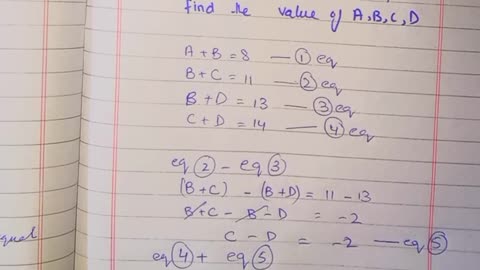 find the value of A,B,C,D
A+B=8 — ① eq
B+C=11 — ② eq
B+D=13 — ③ eq
C+D=14 — ④ eq
eq ② - eq ③
(B+C) - (B+D) = 11-13
B+C-B-D = -2
C-D = -2 — eq ⑤
qual
eq ④ + eq ⑤